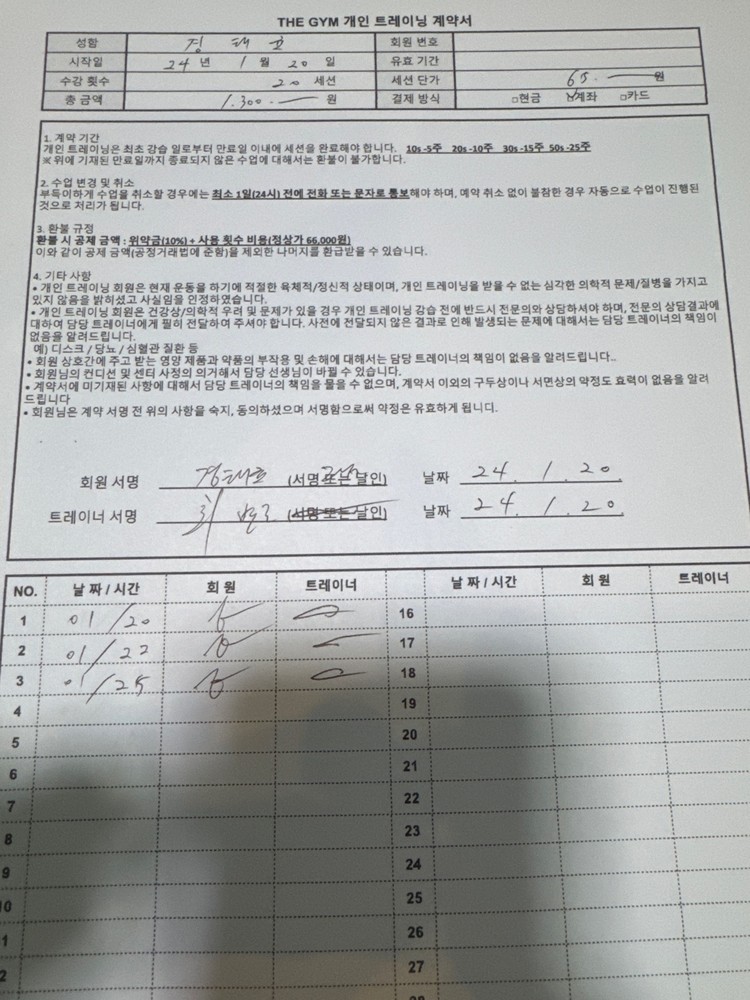 THE GYM 개인 트레이닝 계약서
성함 정 태호 회원 번호
시작일 24 년 1 월 20 일 유효 기간
수강 횟수 20 세션 세션 단가 65. 원
총 금액 1.300. 원 결제 방식 □현금 ☑계좌 □카드
1. 계약 기간
개인 트레이닝은 최초 강습 일로부터 만료일 이내에 세션을 완료해야 합니다. 10s -5주 20s -10주 30s -15주 50s -25주
※ 위에 기재된 만료일까지 종료되지 않은 수업에 대해서는 환불이 불가합니다.
2. 수업 변경 및 취소
부득이하게 수업을 취소할 경우에는 최소 1일(24시) 전에 전화 또는 문자로 통보해야 하며, 예약 취소 없이 불참한 경우 자동으로 수업이 진행된
것으로 처리가 됩니다.
3. 환불 규정
환불 시 공제 금액 : 위약금(10%) + 사용 횟수 비용(정상가 66,000원)
이와 같이 공제 금액(공정거래법에 준함)을 제외한 나머지를 환급받을 수 있습니다.
4. 기타 사항
• 개인 트레이닝 회원은 현재 운동을 하기에 적절한 육체적/정신적 상태이며, 개인 트레이닝을 받을 수 없는 심각한 의학적 문제/질병을 가지고
있지 않음을 밝히셨고 사실임을 인정하였습니다.
• 개인 트레이닝 회원은 건강상/의학적 우려 및 문제가 있을 경우 개인 트레이닝 강습 전에 반드시 전문의와 상담하셔야 하며, 전문의 상담결과에
대하여 담당 트레이너에게 필히 전달하여 주셔야 합니다. 사전에 전달되지 않은 결과로 인해 발생되는 문제에 대해서는 담당 트레이너의 책임이
없음을 알려드립니다.
예) 디스크 / 당뇨 / 심혈관 질환 등
• 회원 상호간에 주고 받는 영양 제품과 약품의 부작용 및 손해에 대해서는 담당 트레이너의 책임이 없음을 알려드립니다..
• 회원님의 컨디션 및 센터 사정의 의거해서 담당 선생님이 바뀔 수 있습니다.
• 계약서에 미기재된 사항에 대해서 담당 트레이너의 책임을 물을 수 없으며, 계약서 이외의 구두상이나 서면상의 약정도 효력이 없음을 알려
드립니다
• 회원님은 계약 서명 전 위의 사항을 숙지, 동의하셨으며 서명함으로써 약정은 유효하게 됩니다.
회원 서명 정태호 (서명 또는 날인) 날짜 24. 1. 20.
트레이너 서명 (서명 또는 날인) 날짜 24. 1. 20.
NO. 날 짜 / 시간 회 원 트레이너 날 짜 / 시간 회 원 트레이너
1 01/20 16
2 01/22 17
3 01/25 18
4 19
5 20
6 21
7 22
8 23
9 24
0 25
1 26
2 27